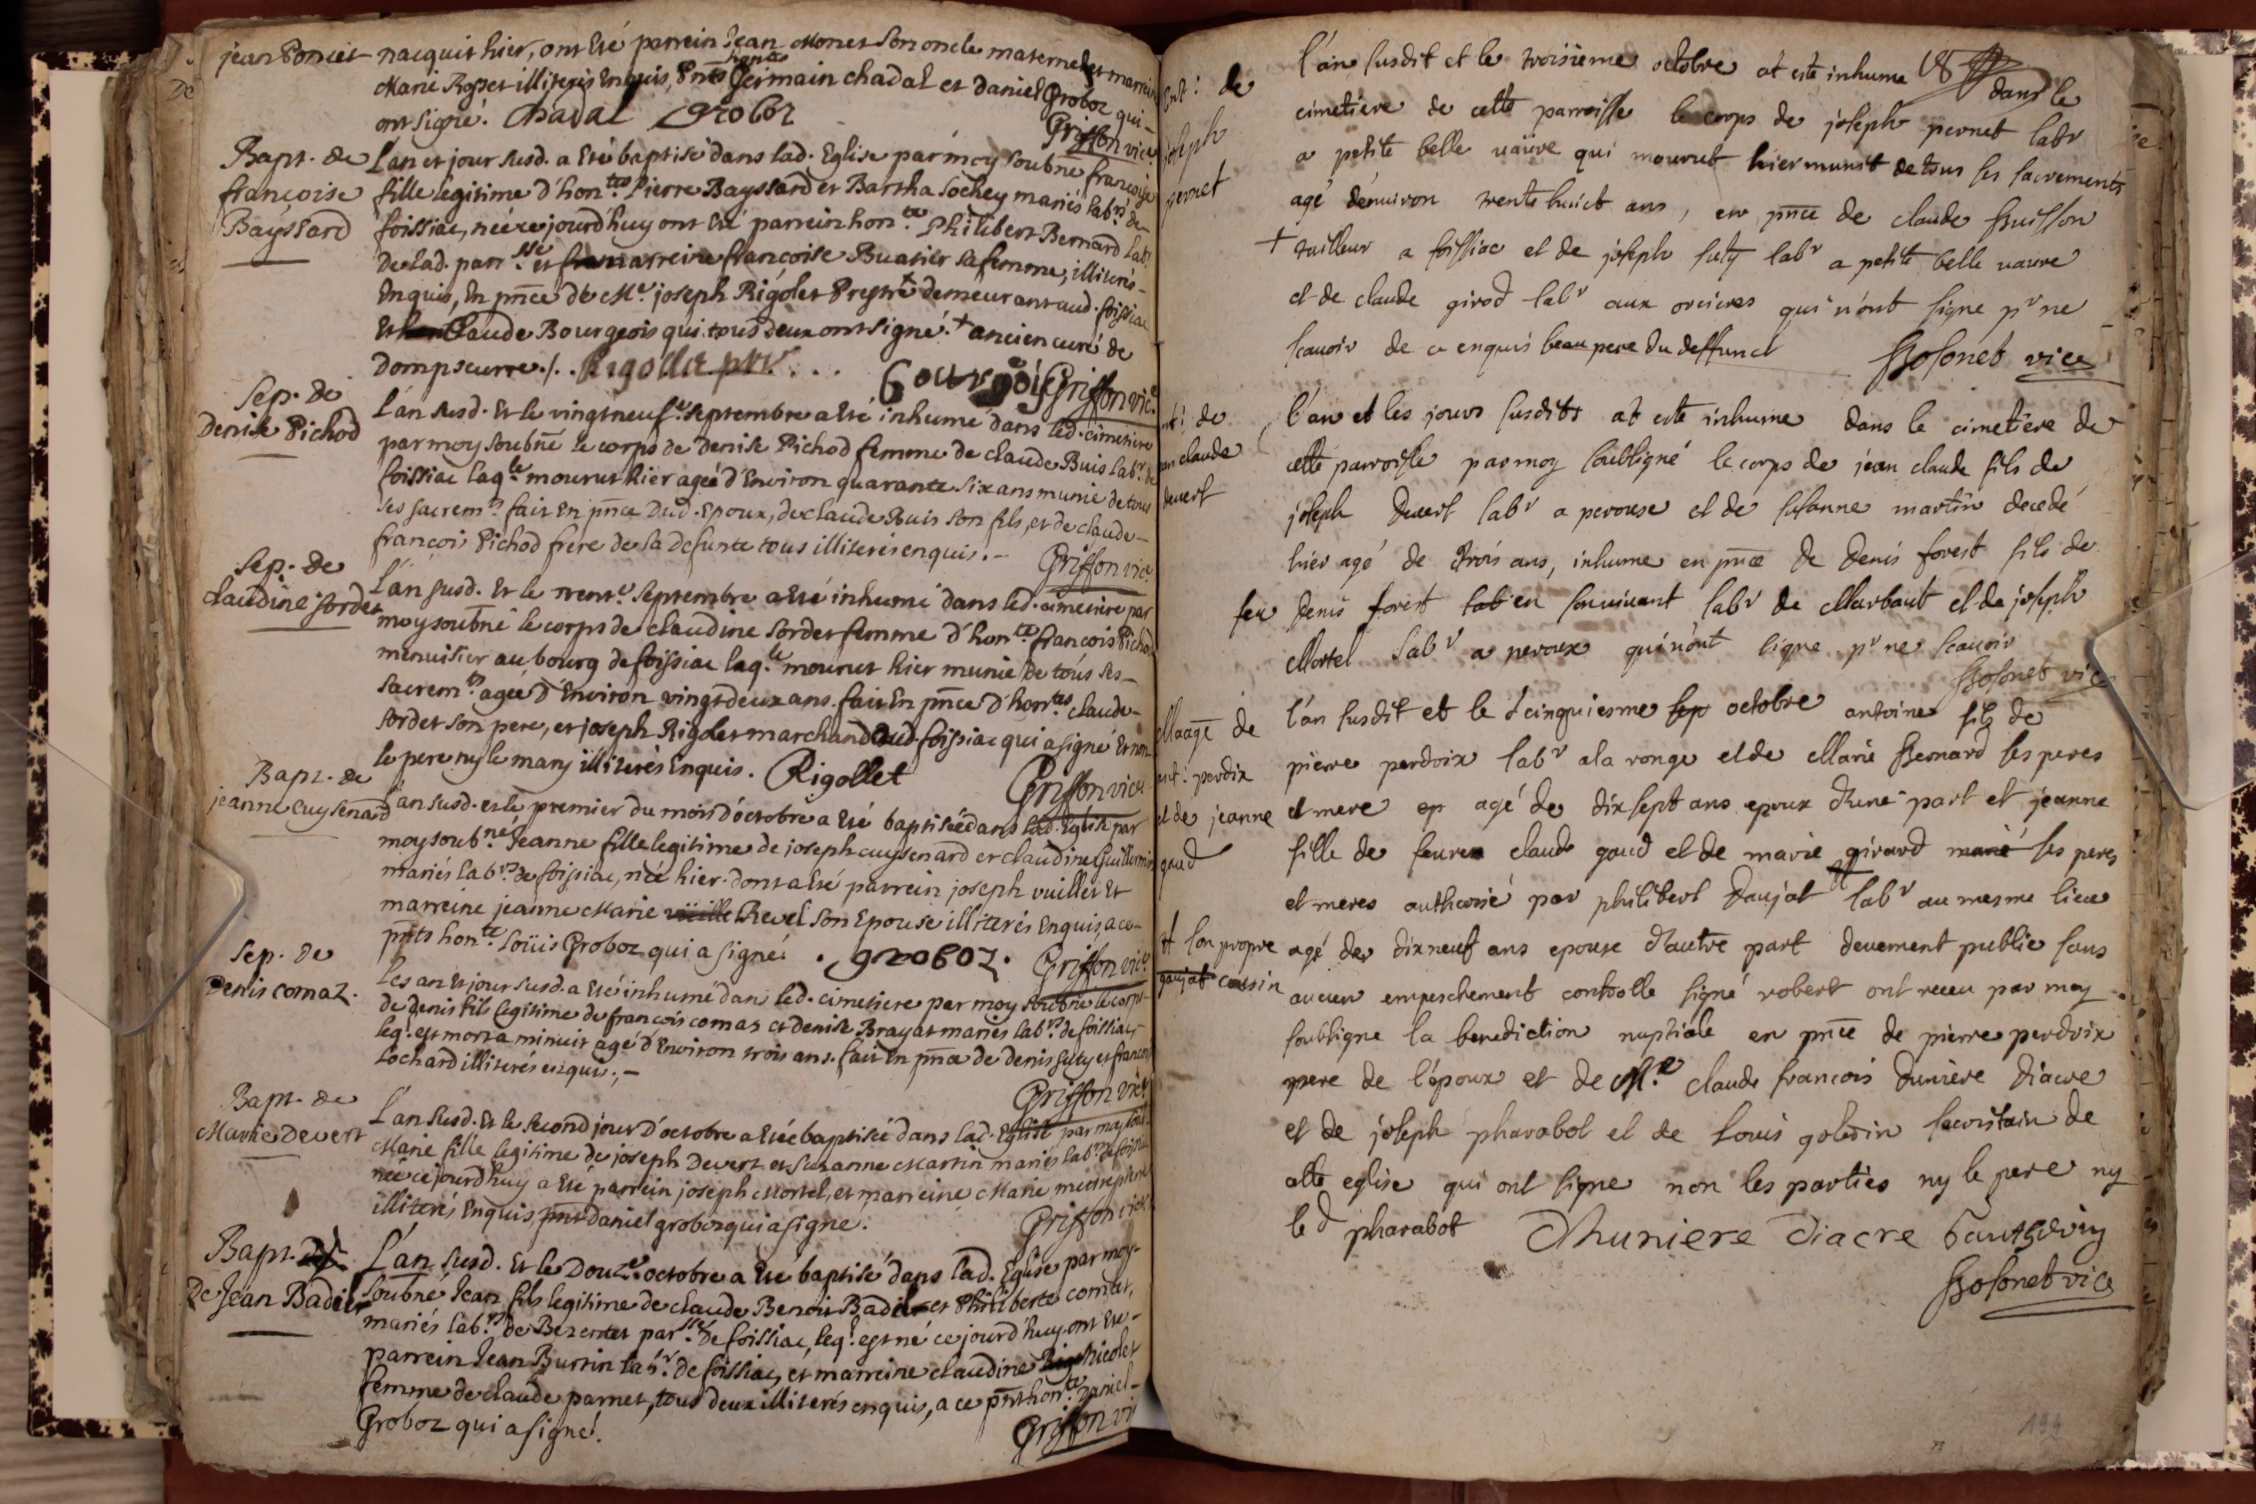 jean Poncet
nacquit hier, ont Eté parrein Jean Monet son oncle maternel et marreine
Marie Roset illiterés Enquis, pnts hontes Germain chadal et Daniel Groboz qui
ont signé. Chadal groboz
Griffon vice
Bapt. de
françoise
Bayssard
L'an et jour susd. a Eté baptisé dans lad. Eglise par moy soubné françoise
fille legitime d'hontes Pierre Bayssard et Bartha Sochey mariés labrs de
foissiac, née ce jourd'huy ont Eté parrein honte Philibert Bernard labr
de lad. parrsse et marreine francoise Buatier sa femme, illiterés
Enquis, En pnce de Me joseph Rigolet Prestre + demeurant aud. foissiac
Et Claude Bourgeois qui tous deux ont signé. + ancien curé de
Dompseurre ./. Rigollet ptr
bourgois Griffon vice
Sep. de
Denise Pichod
L'an susd. Et le vingt neufe septembre a Eté inhumé dans led. cimetiere
par moy soubné le corps de Denise Pichod femme de claude Buis labr de
foissiac laqle mourut hier ageé d'Environ quarante six ans munie de tous
ses sacremts fait En pnce dud. Epoux, de claude Buis son fils, et de claude
françois Pichod frere de la defunte tous illiterés enquis.
Griffon vice
Sep. de
claudine sordet
L'an susd. Et le trente septembre a Eté inhumé dans led. cimetiere par
moy soubné le corps de claudine sordet femme d'honte francois Pichod
menuisier au bourg de foissiac laqle mourut hier munie de tous ses
sacremts ageé d'Environ vingt deux ans. fait En pnce d'hontes claude
sordet son pere, et joseph Rigolet marchand aud foissiac qui a signé Et non
le pere ny le mary illiterés Enquis. Rigollet
Griffon vice
Bapt. de
jeanne Cuysenard
L'an susd. et le premier du mois d'octobre a Eté baptisée dans lad. Eglise par
moy soubné Jeanne fille legitime de joseph cuysenard et claudine Guillermin
mariés labrs de foissiac, née hier. dont a Eté parrein joseph vuillet Et
marreine jeanne Marie Revel son Epouse illiterés Enquis, a ce
pnts honte Loüis Groboz qui a signé. groboz.
Griffon vice
Sep. de
Denis comaz.
Les an et jour susd. a Eté inhumé dans led. cimetiere par moy soubné le corps
de denis fils legitime de francois comas et denise Brayat mariés labrs de foissiac,
leql est mort a minuit agé d'Environ trois ans. fait En pnce de denis suty et francois
Lochard illiterés enquis.
Griffon vice
Bapt. de
Marie Devert
L'an susd. Et le second jour d'octobre a Eté baptisée dans lad. Eglise par moy soubné
Marie fille legitime de joseph Devert et Suzanne Martin mariés labrs de foissiac
née ce jourd'huy a Eté parrein joseph Mortel, et marreine Marie
illiterés Enquis, pnt daniel groboz qui a signé.
Griffon vice
Bapt.
de Jean Badel
L'an susd. Et le Douze octobre a Eté baptisé dans lad. Eglise par moy
soubné Jean fils legitime de claude Benoit Badel et Philiberte comas,
mariés labrs de Bezentet parsse de foissiac, leql est né ce jourd'huy ont Eté
parrein Jean Burtin labr de foissiac, et marreine claudine Nicolet
femme de claude parnet, tous deux illiterés enquis, a ce pnt honte Daniel
Groboz qui a signé.
Griffon vi
ent: de
joseph
pernet
l'an susdit et le troisieme octobre at esté inhume dans le
cimetiere de cette parroisse le corps de joseph pernet labr
a petite belle vaivre qui mourut hier munit de tous les sacrements
agé d'enuiron trente huict ans, en pnce de claude Buisson
+ tailleur a foissiac et de joseph suty labr a petite belle vaure
et de claude girod labr aux orcieres qui n'ont signe pr ne
scauoir de ce enquis beau pere du deffunct
Bosonet vice
ent: de
jean claude
deuert
l'an et les jours susdits at esté inhume dans le cimetiere de
cette parroisse par moy soubligné le corps de jean claude fils de
joseph Deuert labr a perouse et de susanne martin decedé
hier agé de trois ans, inhume en pnce de denis forest fils de
feu denis forest en souuiuant labr de Marbaut et de joseph
Mortel labr a peroux qui n'ont signe pr ne scauoir
Bosonet vice
Maage de
ent: perdix
et de jeanne
goud
l'an susdit et le cinquiesme octobre antoine fils de
pierre perdoix labr a la ronge et de Marie Bernard ses peres
et mere agé de dix sept ans epoux d'une part et jeanne
fille de feu claude goud et de marie girard ses peres
et meres authorisé par philibert Daujat labr au mesme lieu
# son propre
cousin
agé de dix neuf ans epouse d'autre part deuement publie sans
aucun empeschement controlle signé robert ont receu par moy
soubligne la benediction nuptiale en pnce de pierre perdrix
pere de l'époux et de Me claude francois Duniere Diacre
et de joseph pharabot et de Louis goledin sacristain de
cette eglise qui ont signe non les parties ny le pere ny
led pharabot Dhuniere Diacre
Bosonet vice